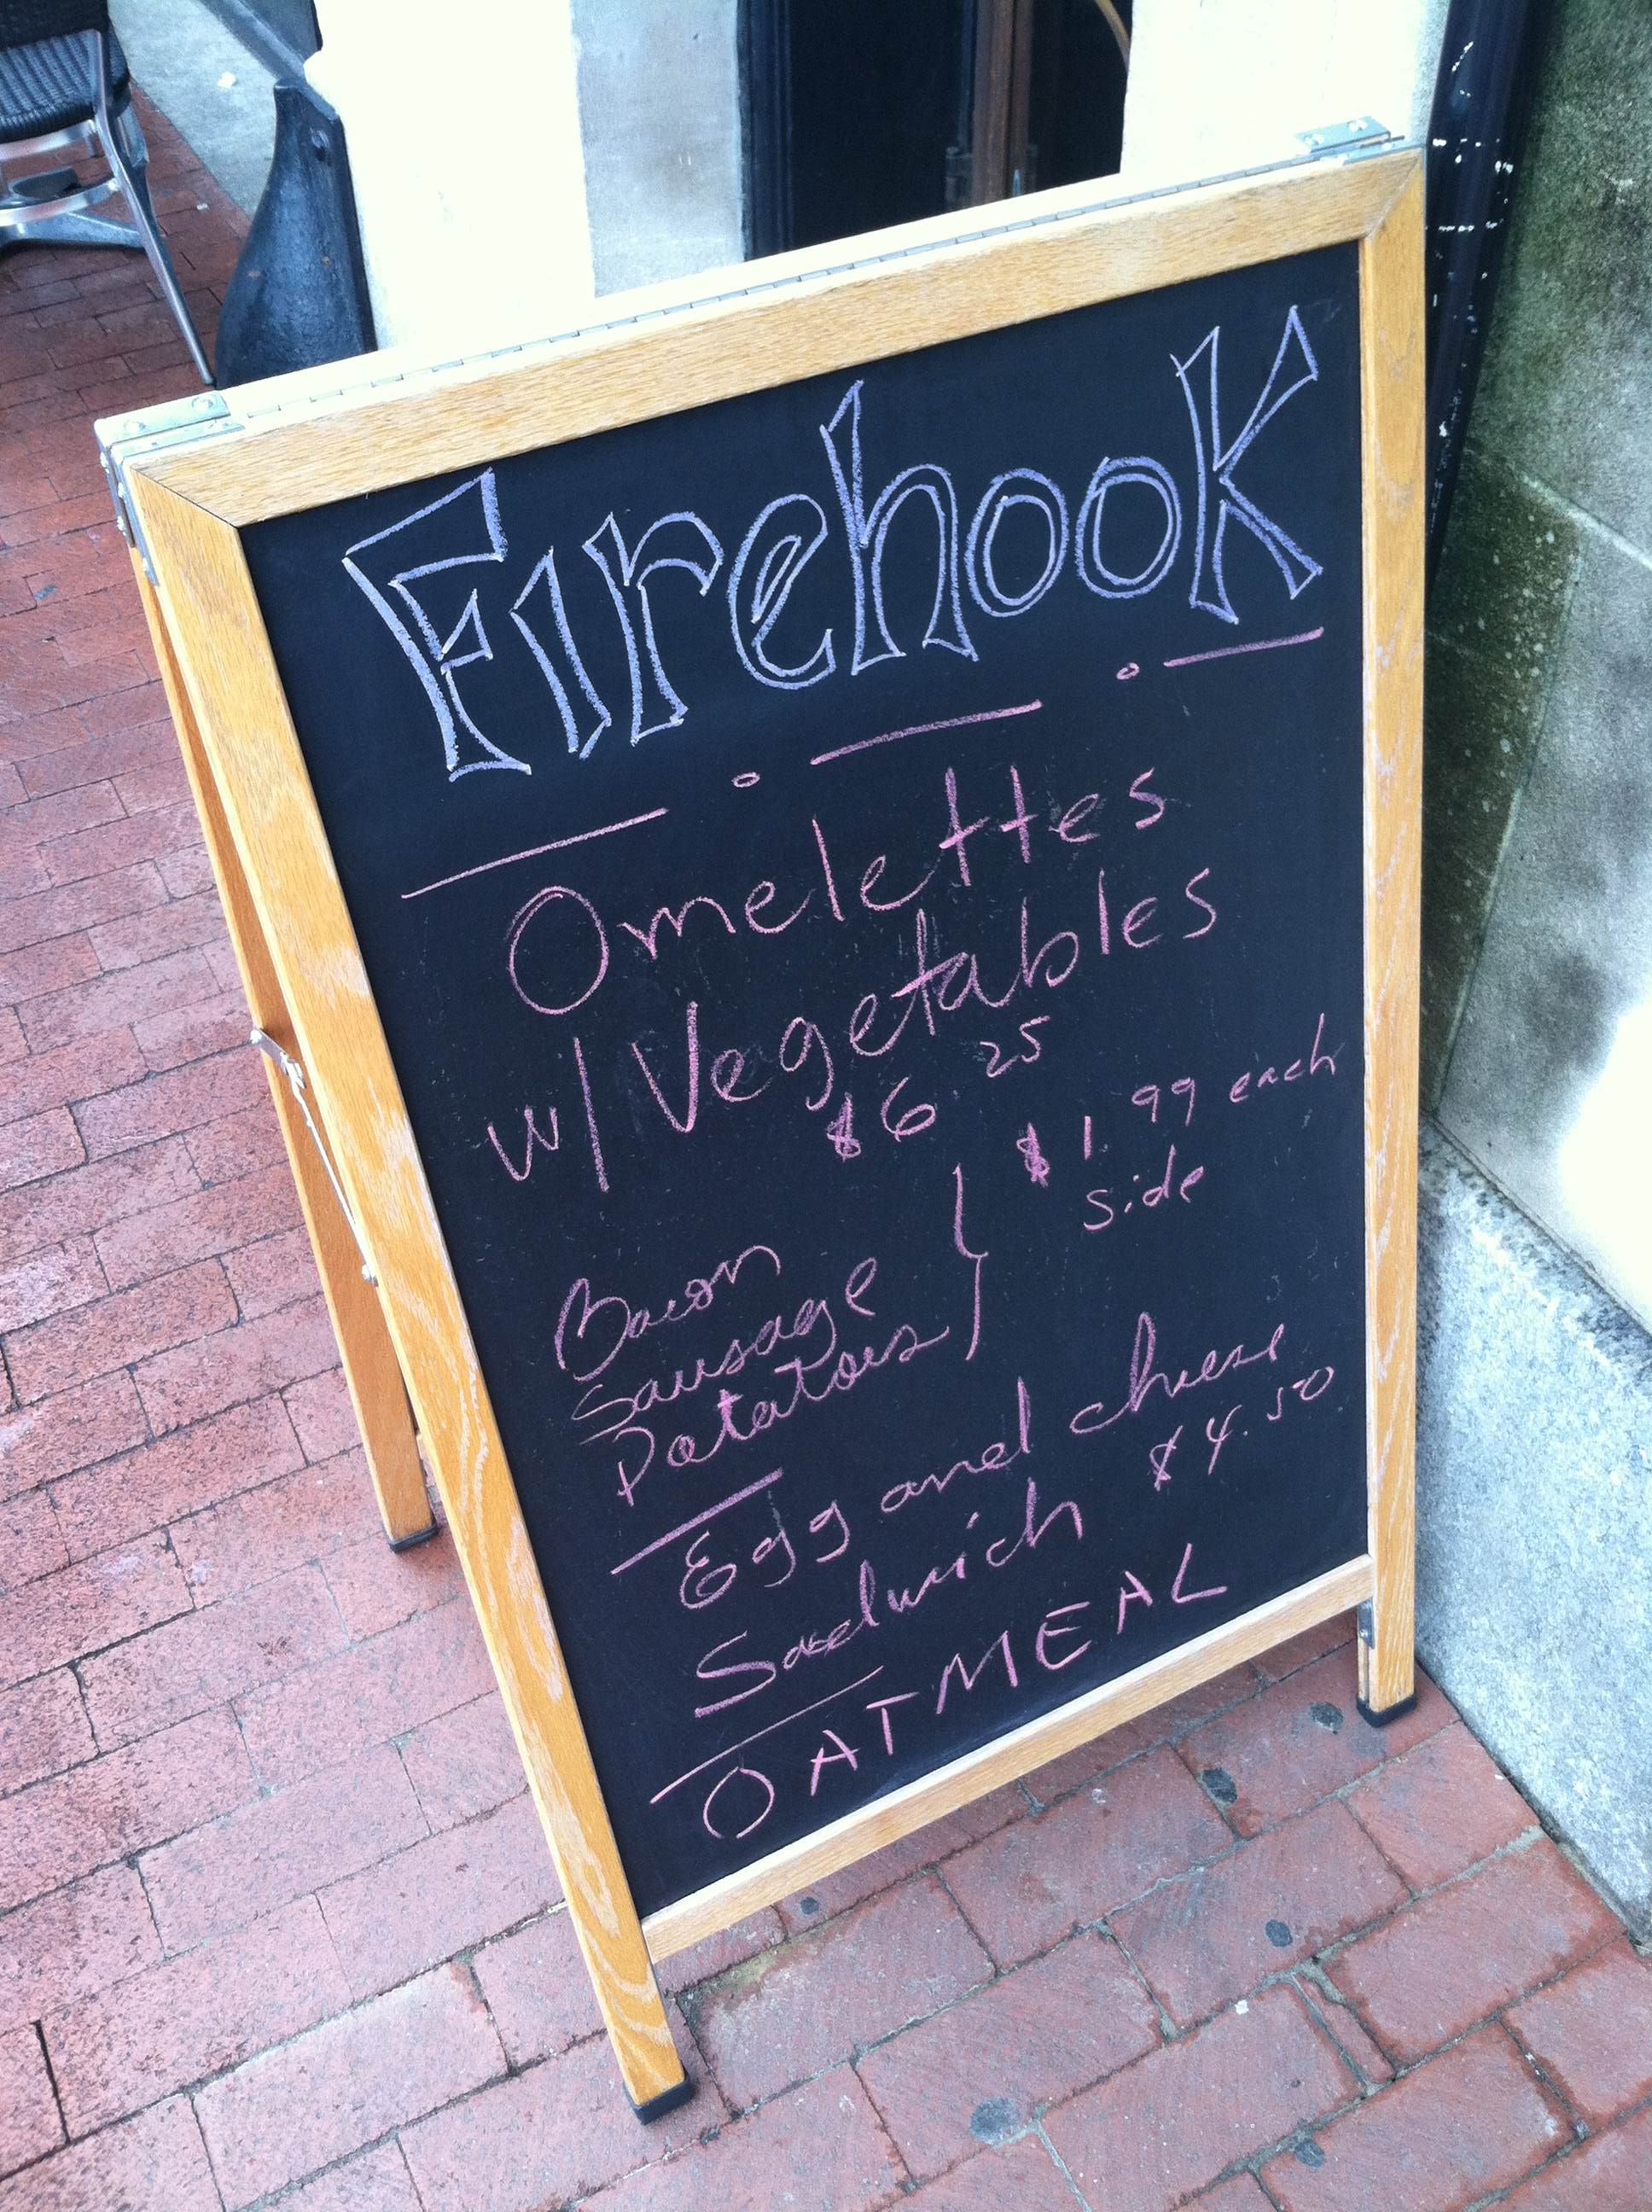 Firehook
Omelettes
w/ Vegetables
$6 25
$1.99 each
side
Bacon
Sausage
Potatoes
Egg and cheese
Sandwich $4.50
OATMEAL